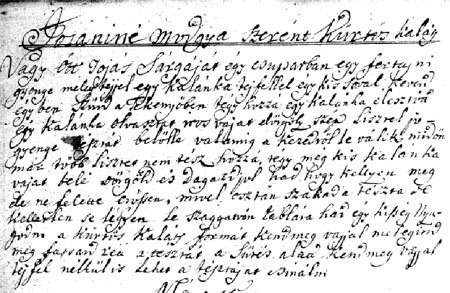 Tosaniné Modgya szerént Kürtös kalács
Vagy ött Tojás Sárgáját egy csuparban egy fertáj ni
gyenge meleg téjjel egy kalánka téjfellel egy kis Soval Kevered
egyben, a Tekenyöben tégy hozza egy kalánka élesztöt
egy kalánka olvasztot vos vajat elégitsd szép Lisztel jo
gyenge belölle valamig a kezedröl le válik midön
már több lisztet nem tész hozza, tégy meg kis kalánka
vajat belé és dagaszd jol had hogy kellyen meg
de ne felette erössen, mivel osztán szakad a Tészta de
keletlen se légyen. Le szaggatván Táblára had egy kisség nyu-
godni a Kürtös Kalács formát kend meg vajjal
meg a tésztát, a Sütés alatt kend meg vajjal
téjfel nélkül is Lehet a tésztáját csinálni